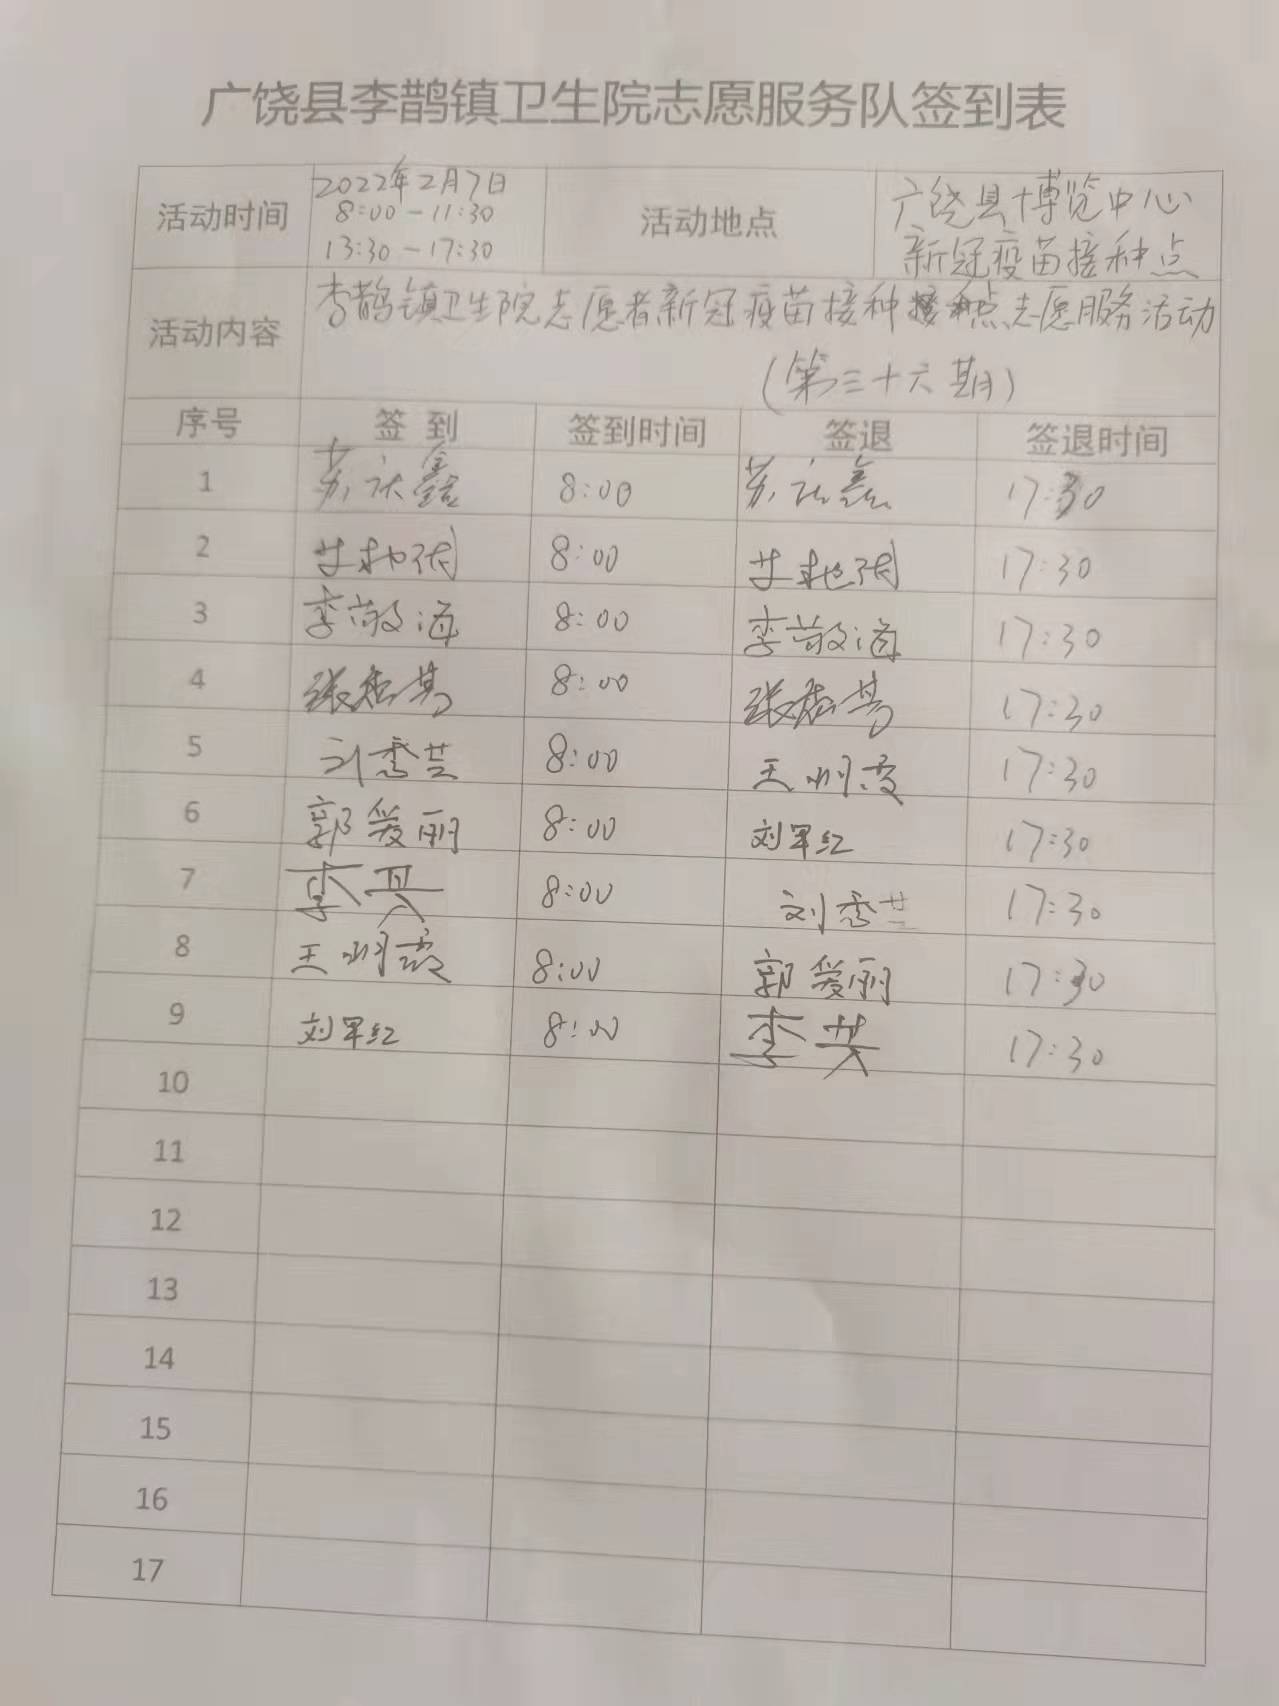 广饶县李鹊镇卫生院志愿服务队签到表
活动时间 2022年2月7日 8:00-11:30 13:30-17:30 活动地点 广饶县博览中心 新冠疫苗接种点
活动内容 李鹊镇卫生院志愿者新冠疫苗接种点志愿服务活动
(第三十六期)
序号 签到 签到时间 签退 签退时间
1 8:00 17:30
2 8:00 17:30
3 李敬海 8:00 李敬海 17:30
4 8:00 17:30
5 刘秀芸 8:00 王明霞 17:30
6 郭爱丽 8:00 刘军红 17:30
7 8:00 刘秀芸 17:30
8 王明霞 8:00 郭爱丽 17:30
9 刘军红 8:00 17:30
10
11
12
13
14
15
16
17